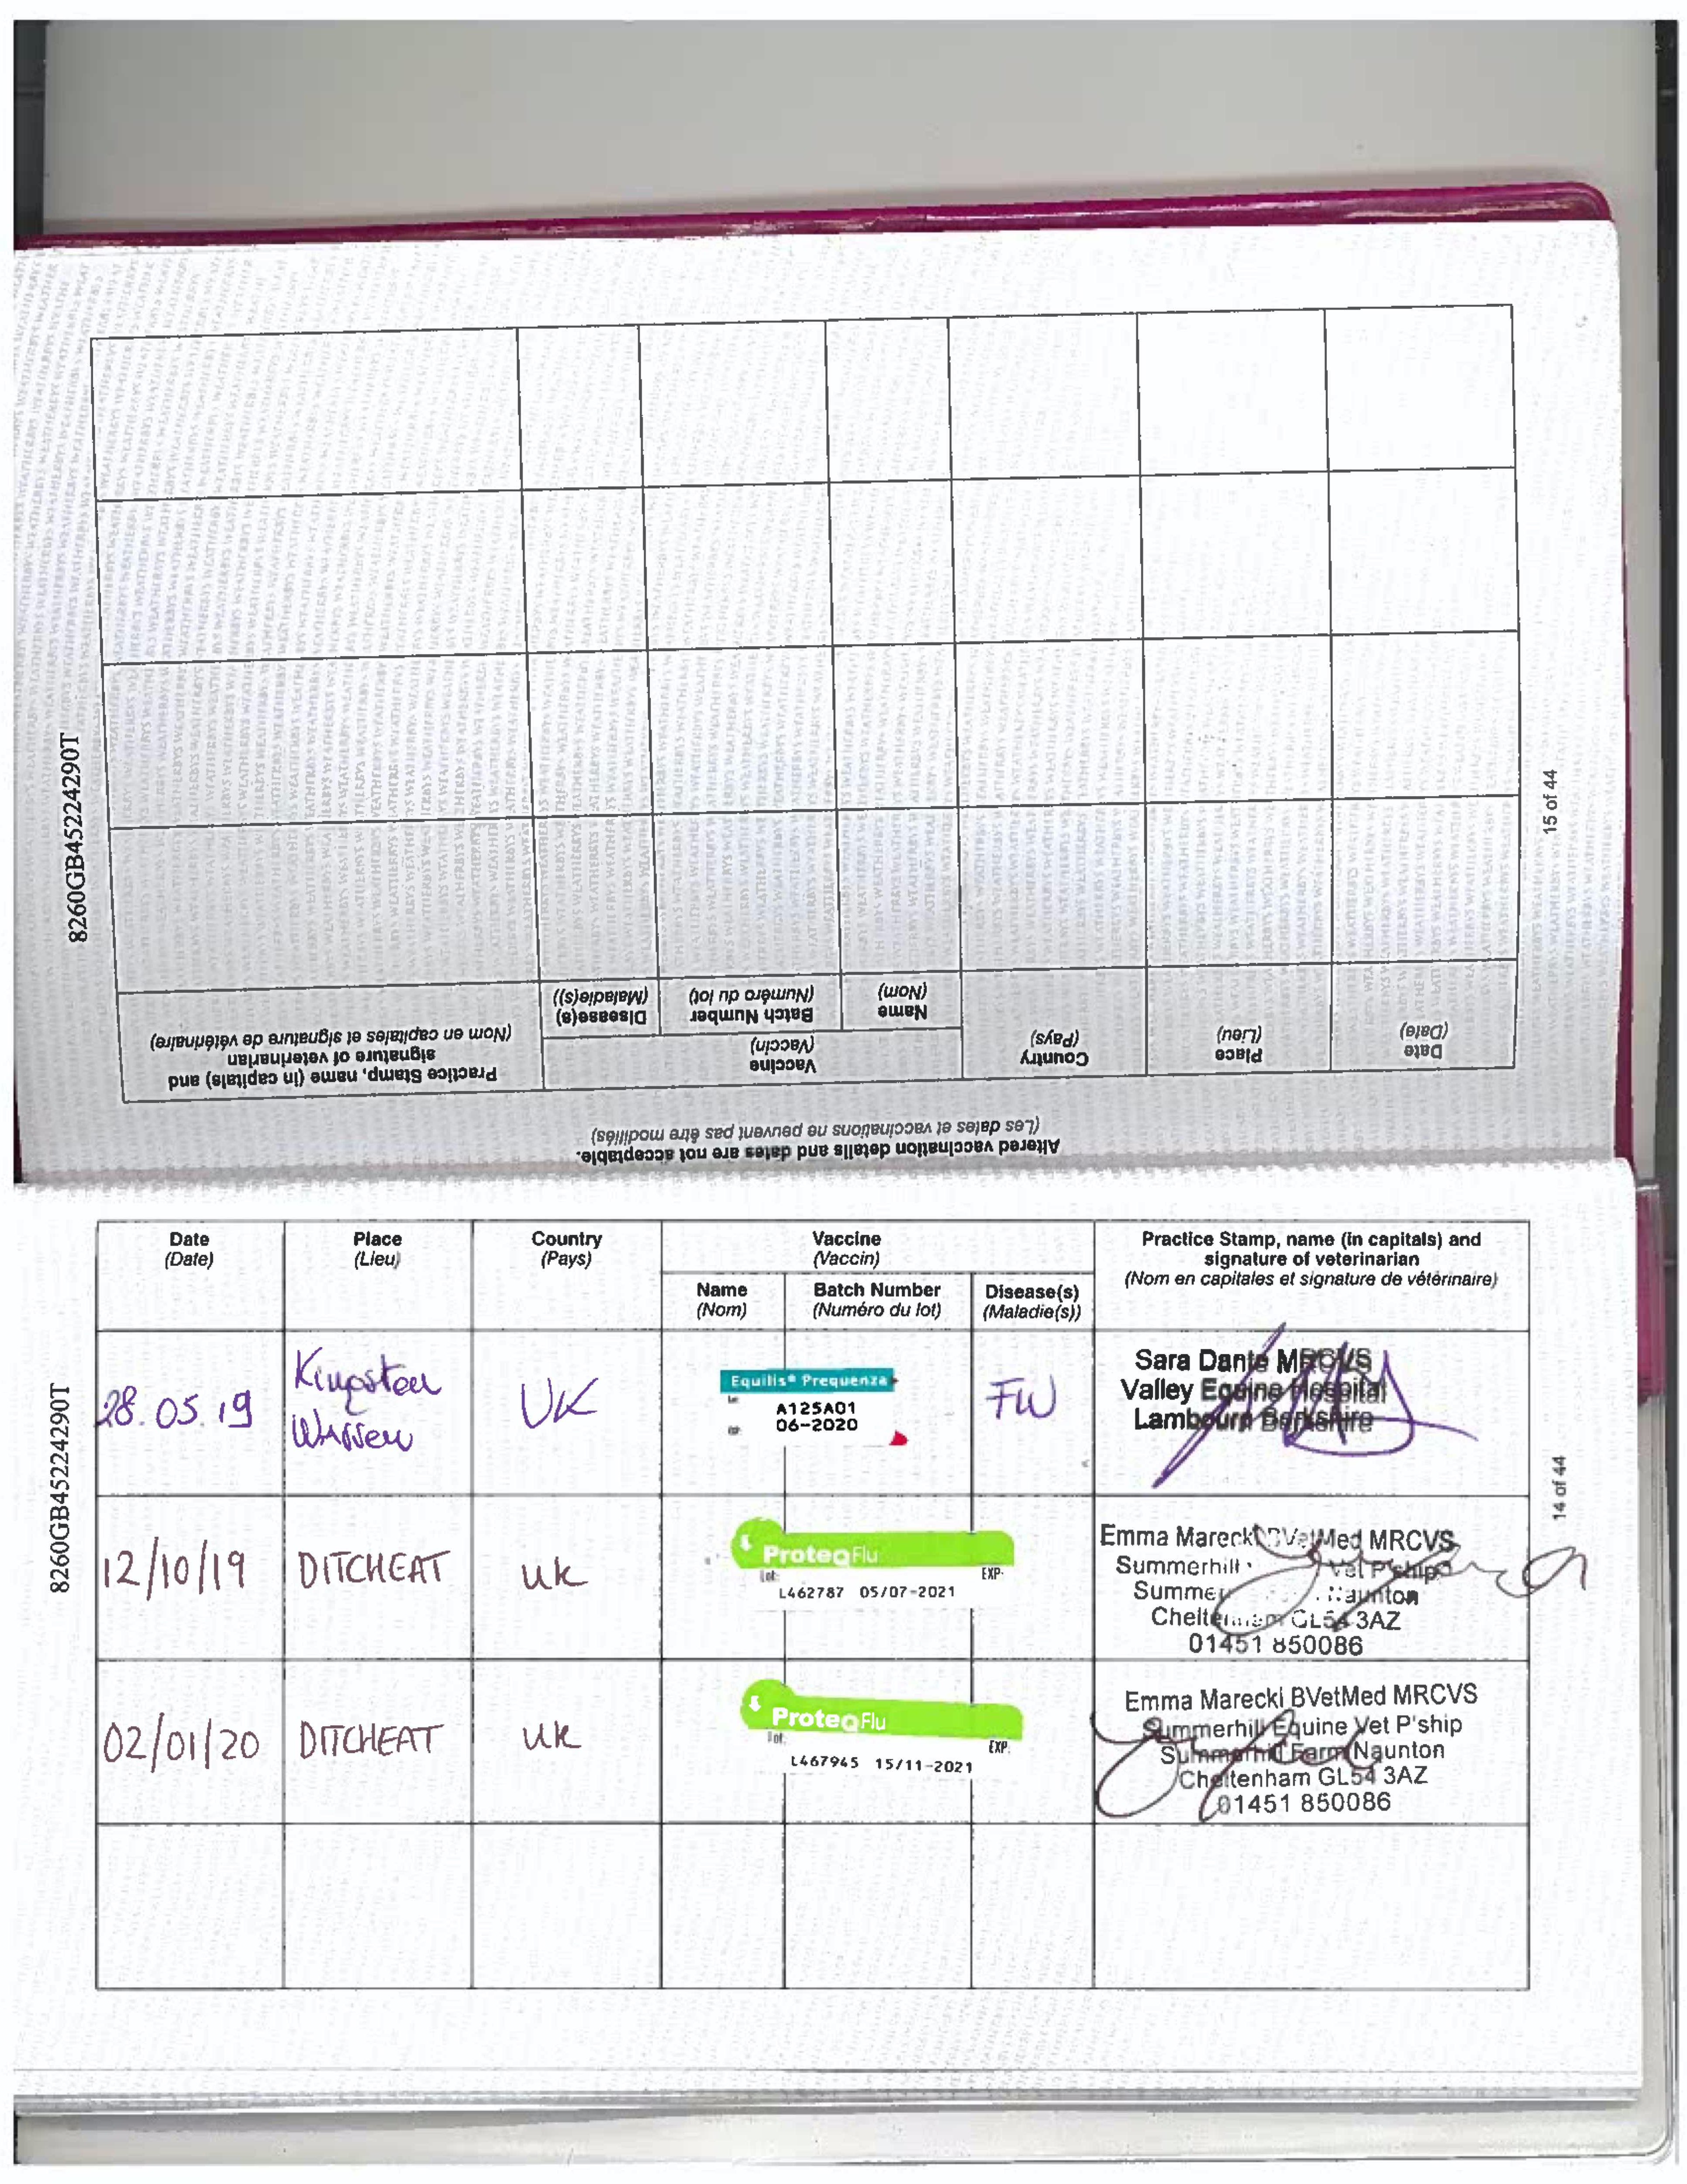 8260GB45224290T
15 of 44
Altered vaccination details and dates are not acceptable.
(Les dates et vaccinations ne peuvent pas être modifiés)
Date
(Date)
Place
(Lieu)
Country
(Pays)
Vaccine
(Vaccin)
Name
(Nom)
Batch Number
(Numéro du lot)
Disease(s)
(Maladie(s))
Practice Stamp, name (in capitals) and
signature of veterinarian
(Nom en capitales et signature de vétérinaire)
8260GB45224290T
14 of 44
Date
(Date)
Place
(Lieu)
Country
(Pays)
Vaccine
(Vaccin)
Name
(Nom)
Batch Number
(Numéro du lot)
Disease(s)
(Maladie(s))
Practice Stamp, name (in capitals) and
signature of veterinarian
(Nom en capitales et signature de vétérinaire)
28.05.19
Kingston
Warren
UK
Equilis® Prequenza
A125A01
06-2020
Sara Dante MRCVS
Valley Equine Hospital
Lambourn Berkshire
12/10/19
DITCHEAT
UK
ProteqFlu
Lot:
EXP:
L462787 05/07-2021
Emma Marecki BVetMed MRCVS
Summerhill Vet P'ship
Naunton
Cheltenham GL54 3AZ
01451 850086
02/01/20
DITCHEAT
UK
ProteqFlu
Lot:
EXP:
L467945 15/11-2021
Emma Marecki BVetMed MRCVS
Summerhill Equine Vet P'ship
Summerhill Farm Naunton
Cheltenham GL54 3AZ
01451 850086